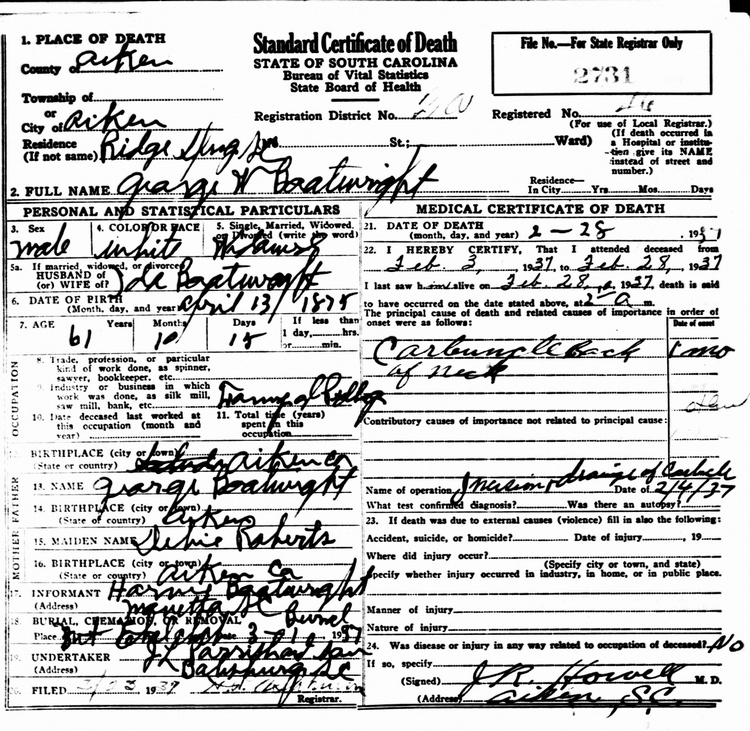 Standard Certificate of Death
STATE OF SOUTH CAROLINA
Bureau of Vital Statistics
State Board of Health
File No.—For State Registrar Only
2731
1. PLACE OF DEATH
County of Aiken
Township of
or
City of Aiken
Registration District No.
Registered No.
(For use of Local Registrar.)
Residence (If not same) Ridge Spring SC St.; Ward)
(If death occurred in a Hospital or institution give its NAME instead of street and number.)
2. FULL NAME George W Boatwright
Residence— In City Yrs. Mos. Days
PERSONAL AND STATISTICAL PARTICULARS
3. Sex male
4. COLOR OR RACE white
5. Single, Married, Widowed, or Divorced (write the word)
5a. If married, widowed, or divorced
HUSBAND of
(or) WIFE of? Boatwright
6. DATE OF BIRTH
(Month, day, and year) April 13, 1875
7. AGE 61 Years 10 Months 15 Days If less than 1 day, hrs. or min.
OCCUPATION
8. Trade, profession, or particular
kind of work done, as spinner,
sawyer, bookkeeper, etc.
9. Industry or business in which
work was done, as silk mill,
saw mill, bank, etc.
10. Date deceased last worked at
this occupation (month and
year)
11. Total time (years)
spent in this
occupation
12. BIRTHPLACE (city or town)
(State or country) Aiken Co
FATHER
13. NAME George Boatwright
14. BIRTHPLACE (city or town)
(State or country) Aiken
MOTHER
15. MAIDEN NAME Roberts
16. BIRTHPLACE (city or town)
(State or country) Aiken Co
17. INFORMANT Boatwright
(Address) SC
18. BURIAL, CREMATION, OR REMOVAL Burial
Place Date 3-1 1937
19. UNDERTAKER
Batesburg SC
20. FILED 1937
Registrar.
MEDICAL CERTIFICATE OF DEATH
21. DATE OF DEATH
(month, day, and year) 2-28
22. I HEREBY CERTIFY, That I attended deceased from
Feb. 3, 1937, to Feb. 28, 1937
I last saw him alive on Feb. 28, 1937, death is said
to have occurred on the date stated above, at 2 a m.
The principal cause of death and related causes of importance in order of
onset were as follows:
Date of onset
Carbuncle Back 1 mo
of neck
Contributory causes of importance not related to principal cause:
Name of operation Incision & drainage of Date of 2/4/37
What test confirmed diagnosis? Was there an autopsy?
23. If death was due to external causes (violence) fill in also the following:
Accident, suicide, or homicide? Date of injury , 19
Where did injury occur?
(Specify city or town, and state)
Specify whether injury occurred in industry, in home, or in public place.
Manner of injury
Nature of injury
24. Was disease or injury in any way related to occupation of deceased? No
If so, specify
(Signed) J.R. Howell M. D.
(Address) Aiken, S.C.